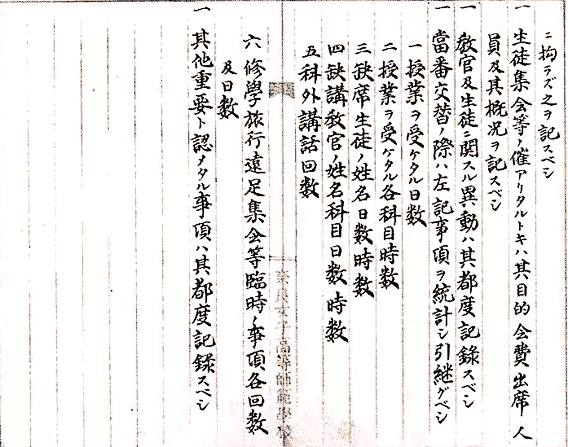 ニ拘ラズ之ヲ記スベシ
一 生徒集会等ノ催アリタルトキハ其目的会費出席人
員及其概況ヲ記スベシ
一 教官及生徒ニ関スル異動ハ其都度記録スベシ
一 當番交替ノ際ハ左記事項ヲ統計シ引継グベシ
一 授業ヲ受ケタル日数
二 授業ヲ受ケタル各科目時数
三 缺席生徒ノ姓名日数時数
四 缺講教官ノ姓名科目日数時数
五 科外講話回数
奈良女子高等師範學校
六 修學旅行遠足集会等臨時ノ事項各回数
及日数
一 其他重要ト認メタル事項ハ其都度記録スベシ